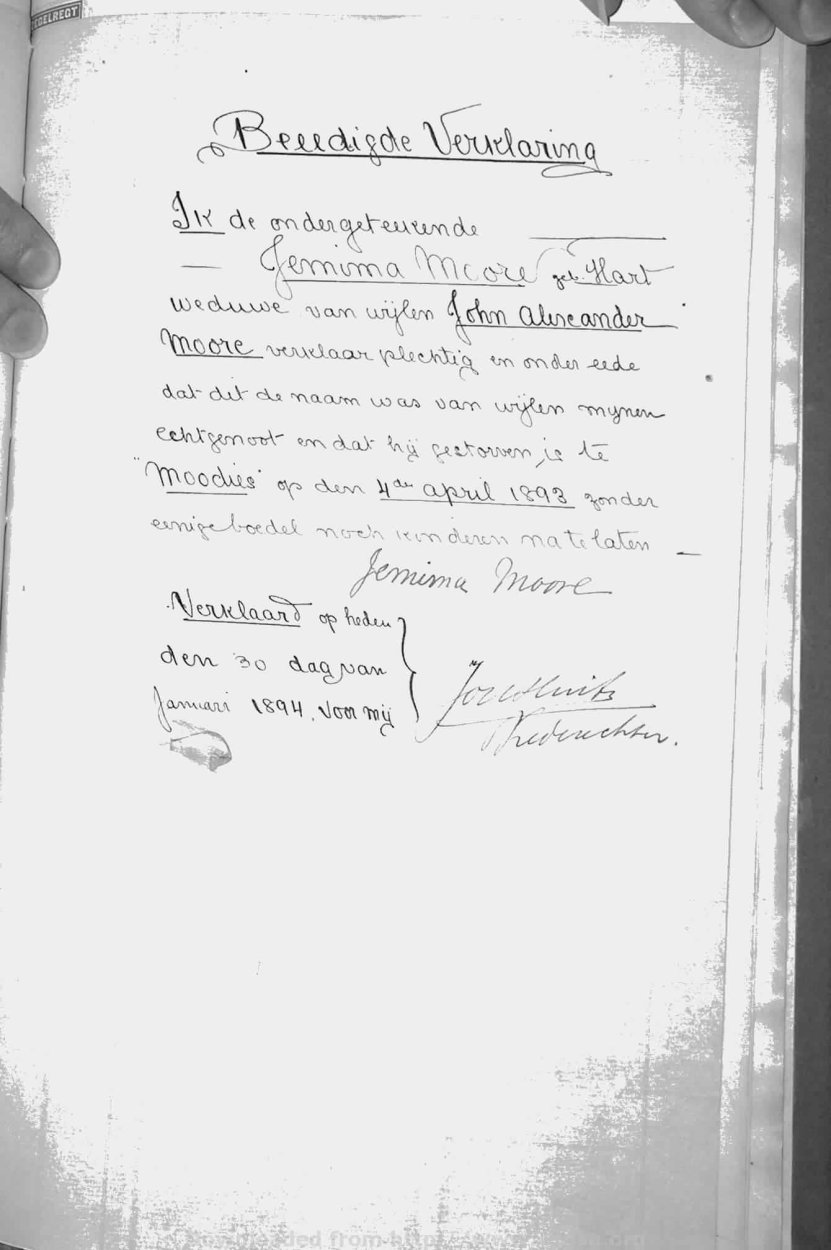 ZEGELREGT
Beeedigde Verklaring
Ik de ondergeteekende
Jemima Moore geb. Hart
weduwe van wijlen John Alexander
Moore verklaar plechtig en onder eede
dat dit de naam was van wijlen mynen
echtgenoot en dat hij gestorven is te
"Moodies" op den 4den april 1893 zonder
eenige boedel noch kinderen na te laten
Jemima Moore
Verklaard op heden
den 30 dag van
Januari 1894. Voor mij
Vrederechter.
Downloaded from http